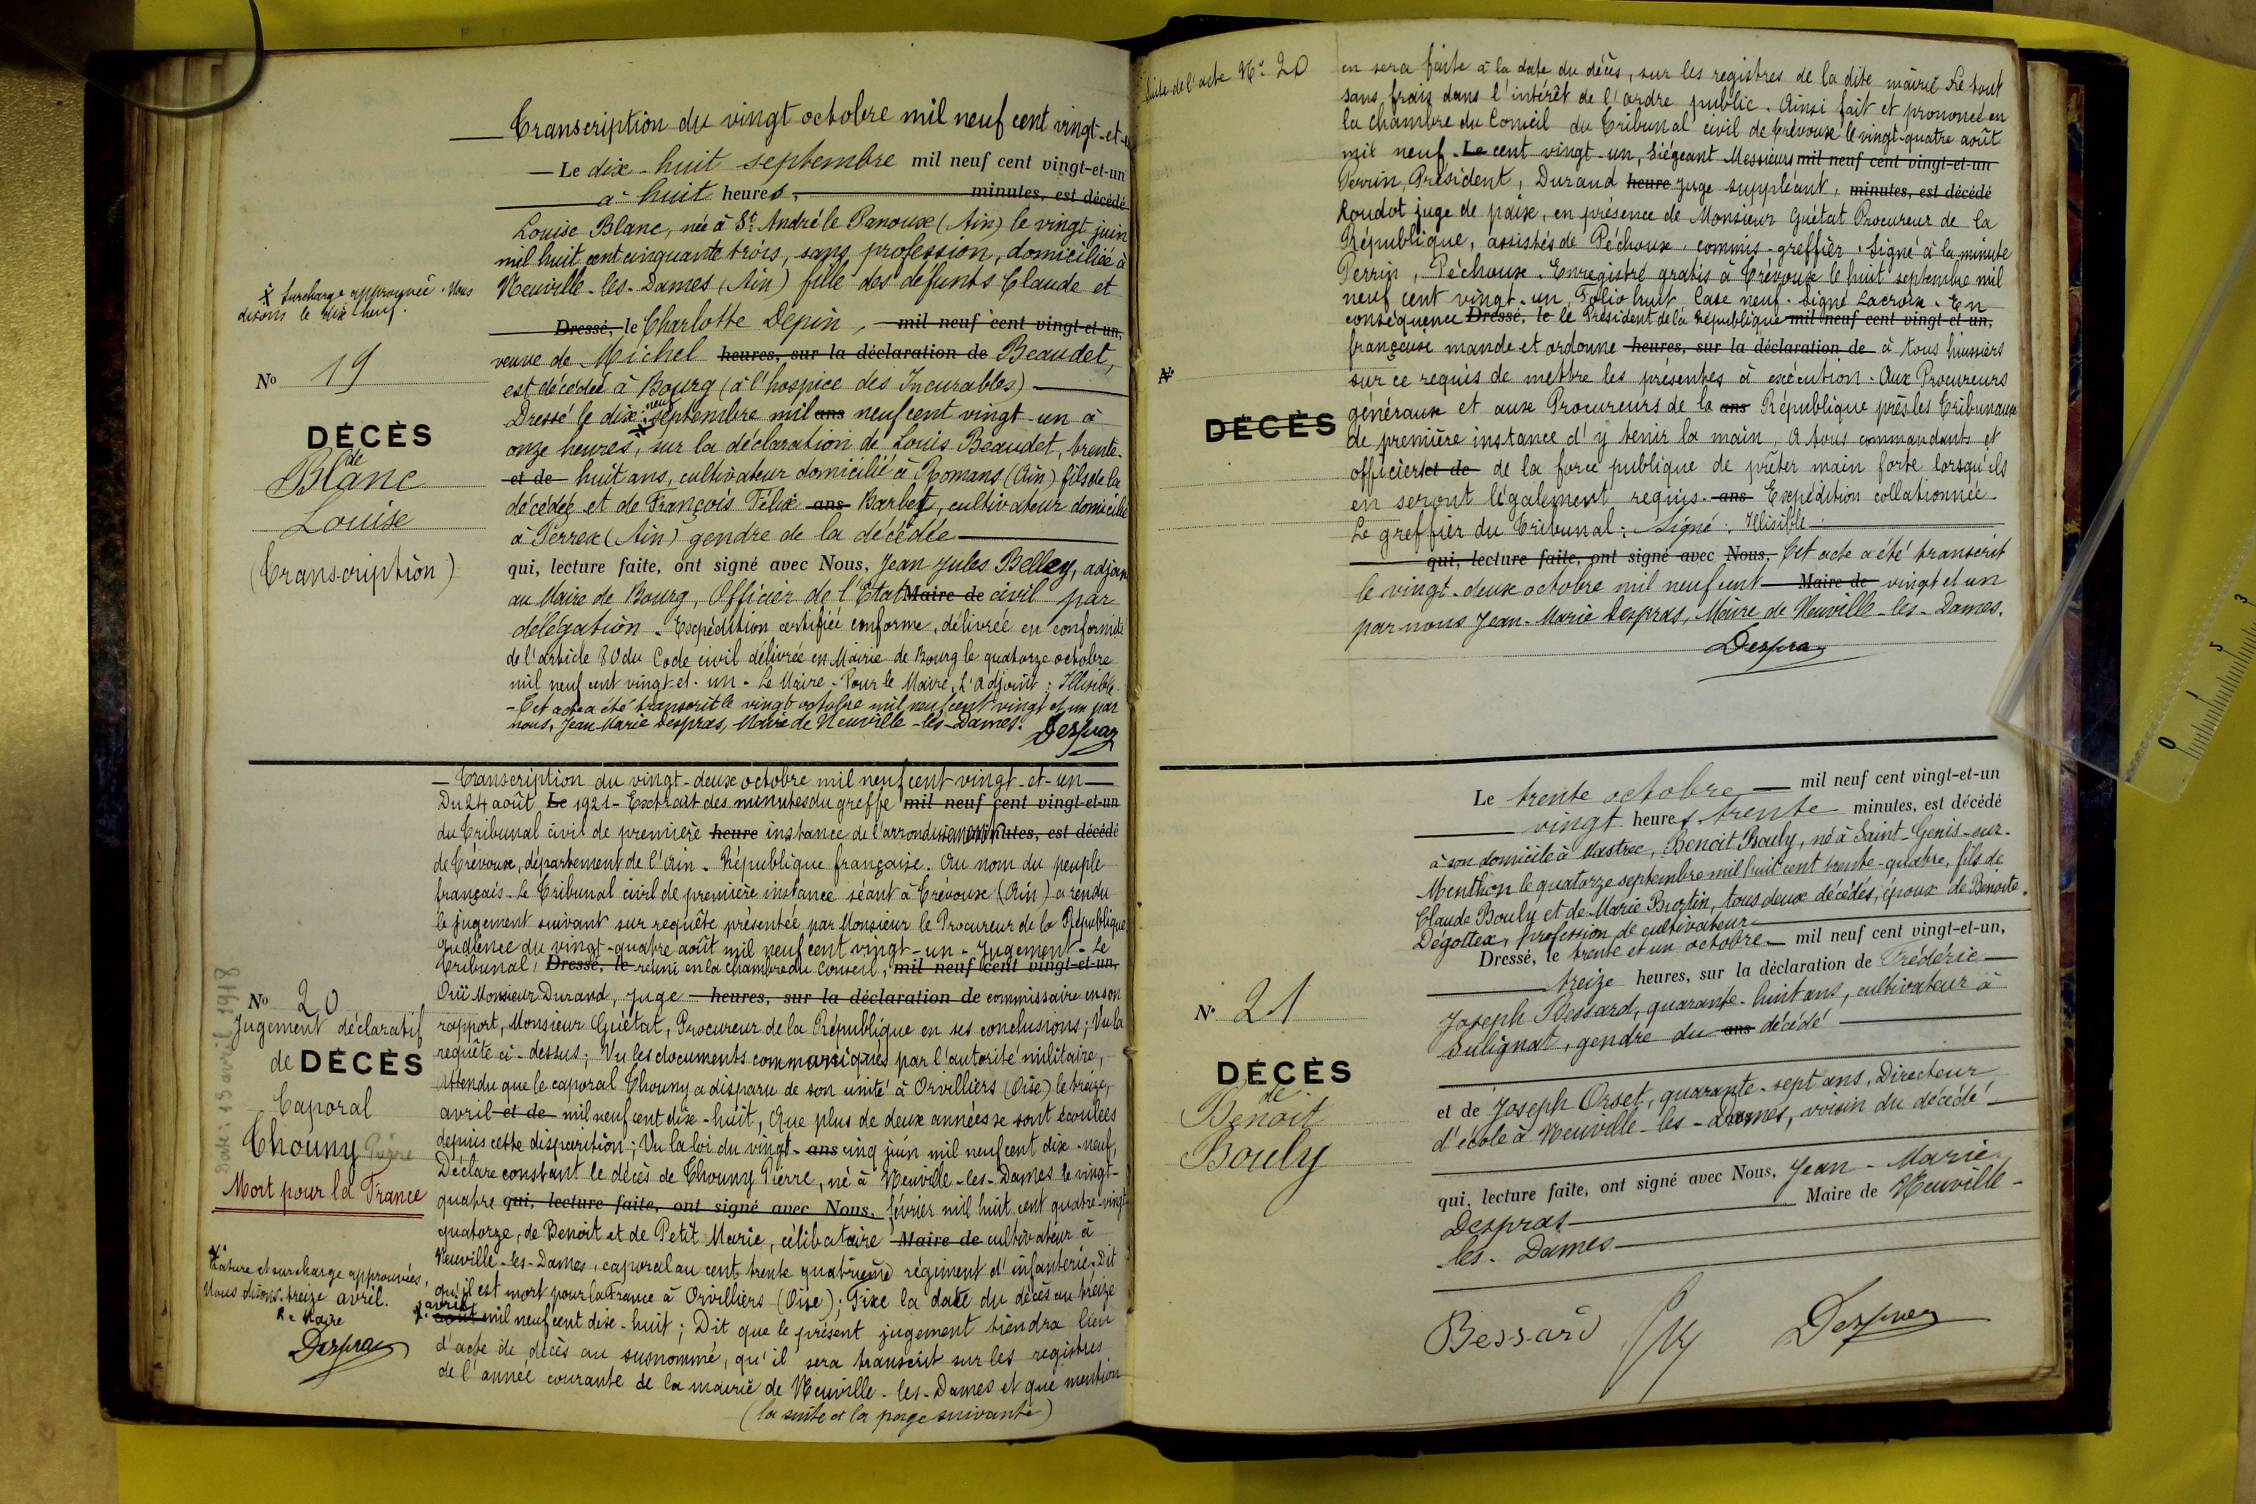 Transcription du vingt octobre mil neuf cent vingt-et-
— Le dix-huit septembre mil neuf cent vingt-et-un
à huit heures, minutes, est décédé
Louise Blanc, née à St André le Panoux (Ain) le vingt juin
mil huit cent cinquante trois, sans profession, domiciliée à
Neuville-les-Dames (Ain) fille des défunts Claude et
Dressé, le Charlotte Depin, mil neuf cent vingt-et-un,
veuve de Michel heures, sur la déclaration de Beaudet,
est décédée à Bourg (à l'hospice des Incurables)
Dressé le dix-neuf septembre mil ans neuf cent vingt-un à
onze heures, sur la déclaration de Louis Beaudet, trente-
et de huit ans, cultivateur domicilié à Romans (Ain) fils de la
décédée et de François Félix ans Barbet, cultivateur domicilié
à Perrex (Ain) gendre de la décédée
qui, lecture faite, ont signé avec Nous, Jean Jules Belley, adjoint
au Maire de Bourg, Officier de l'Etat Maire de civil par
délégation. Expédition certifiée conforme, délivrée en conformité
de l'article 80 du Code civil délivrée en Mairie de Bourg le quatorze octobre
mil neuf cent vingt-et-un. Le Maire - Pour le Maire, L'adjoint : Illisible.
- Cet acte a été transcrit le vingt octobre mil neuf cent vingt et un par
nous, Jean Marie Despras, Maire de Neuville-les-Dames. Despras
X Surcharge approuvée. Nous
disons le dix neuf.
No 19
DÉCÈS
de
Blanc
Louise
(Transcription)
— Transcription du vingt-deux octobre mil neuf cent vingt-et-un —
Du 24 août Le 1921 - Extrait des minutes du greffe mil neuf cent vingt-et-un
du Tribunal civil de première heure instance de l'arrondissement minutes, est décédé
de Trévoux, département de l'Ain. République française. Au nom du peuple
français - Le Tribunal civil de première instance séant à Trévoux (Ain) a rendu
le jugement suivant sur requête présentée par Monsieur le Procureur de la République
Audience du vingt-quatre août mil neuf cent vingt-un - Jugement - Le
Tribunal, Dressé, le réuni en la chambre du Conseil, mil neuf cent vingt-et-un,
Ouï Monsieur Durand, juge heures, sur la déclaration de commissaire en son
rapport, Monsieur Guétat, Procureur de la République en ses conclusions; Vu la
requête ci-dessus; Vu les documents communiqués par l'autorité militaire,
Attendu que le caporal Chouny a disparu de son unité à Orvilliers (Oise) le treize
avril et de mil neuf cent dix-huit, Que plus de deux années se sont écoulées
depuis cette disparition; Vu la loi du vingt-ans cinq juin mil neuf cent dix-neuf,
Déclare constant le décès de Chouny Pierre, né à Neuville-les-Dames le vingt-
quatre qui, lecture faite, ont signé avec Nous, février mil huit cent quatre-vingt
quatorze, de Benoit et de Petit Marie, célibataire Maire de cultivateur à
Neuville-les-Dames, caporal au cent trente quatrième régiment d'infanterie. Dit
qu'il est mort pour la France à Orvilliers (Oise); Fixe la date du décès au treize
X avril août mil neuf cent dix-huit; Dit que le présent jugement tiendra lieu
d'acte de décès au susnommé, qu'il sera transcrit sur les registres
de l'année courante de la mairie de Neuville-les-Dames et que mention
(la suite à la page suivante)
No 20
Jugement déclaratif
de DÉCÈS
Caporal
Chouny Pierre
Mort pour la France
13 avril 1918
Rature et surcharge approuvées.
Nous disons treize avril.
Le Maire
Despras
Suite de l'acte No 20
en sera faite à la date du décès, sur les registres de la dite mairie Le tout
sans frais dans l'intérêt de l'ordre public. Ainsi fait et prononcé en
la chambre du Conseil du Tribunal civil de Trévoux le vingt-quatre août
mil neuf Le cent vingt-un, Siégeant Messieurs mil neuf cent vingt-et-un
Perrin, Président, Durand heure juge suppléant, minutes, est décédé
Roudot juge de paix, en présence de Monsieur Guétat Procureur de la
République, assistés de Péchoux commis-greffier. Signé à la minute
Perrin, Péchoux. Enregistré gratis à Trévoux le huit septembre mil
neuf cent vingt-un, Folio huit Case neuf. Signé Lacroix. En
conséquence Dressé, le le Président de la République mil neuf cent vingt-et-un,
française mande et ordonne heures, sur la déclaration de à tous huissiers
sur ce requis de mettre les présentes à exécution. Aux Procureurs
généraux et aux Procureurs de la ans République près les Tribunaux
de première instance d'y tenir la main. A tous commandants et
officiers et de de la force publique de prêter main forte lorsqu'ils
en seront légalement requis. ans Expédition collationnée.
Le greffier du Tribunal : Signé : Illisible
qui, lecture faite, ont signé avec Nous, Cet acte a été transcrit
le vingt-deux octobre mil neuf cent Maire de vingt et un
par nous Jean-Marie Despras, Maire de Neuville-les-Dames.
Despras
No
DÉCÈS
Le trente octobre — mil neuf cent vingt-et-un
vingt heures trente minutes, est décédé
à son domicile à Mastrec, Benoit Bouly, né à Saint-Genis-sur-
Menthon le quatorze septembre mil huit cent trente-quatre, fils de
Claude Bouly et de Marie Burtin, tous deux décédés, époux de Benoite
Dégottex, profession de cultivateur
Dressé, le trente et un octobre — mil neuf cent vingt-et-un,
treize heures, sur la déclaration de Frédéric
Joseph Bessard, quarante-huit ans, cultivateur à
Sulignat, gendre du ans décédé
et de Joseph Orset, quarante-sept ans, Directeur
d'école à Neuville-les-Dames, voisin du décédé
qui, lecture faite, ont signé avec Nous, Jean-Marie
Despras Maire de Neuville-
les-Dames
Bessard Despras
No 21
DÉCÈS
de
Benoit
Bouly
0 1 2 3